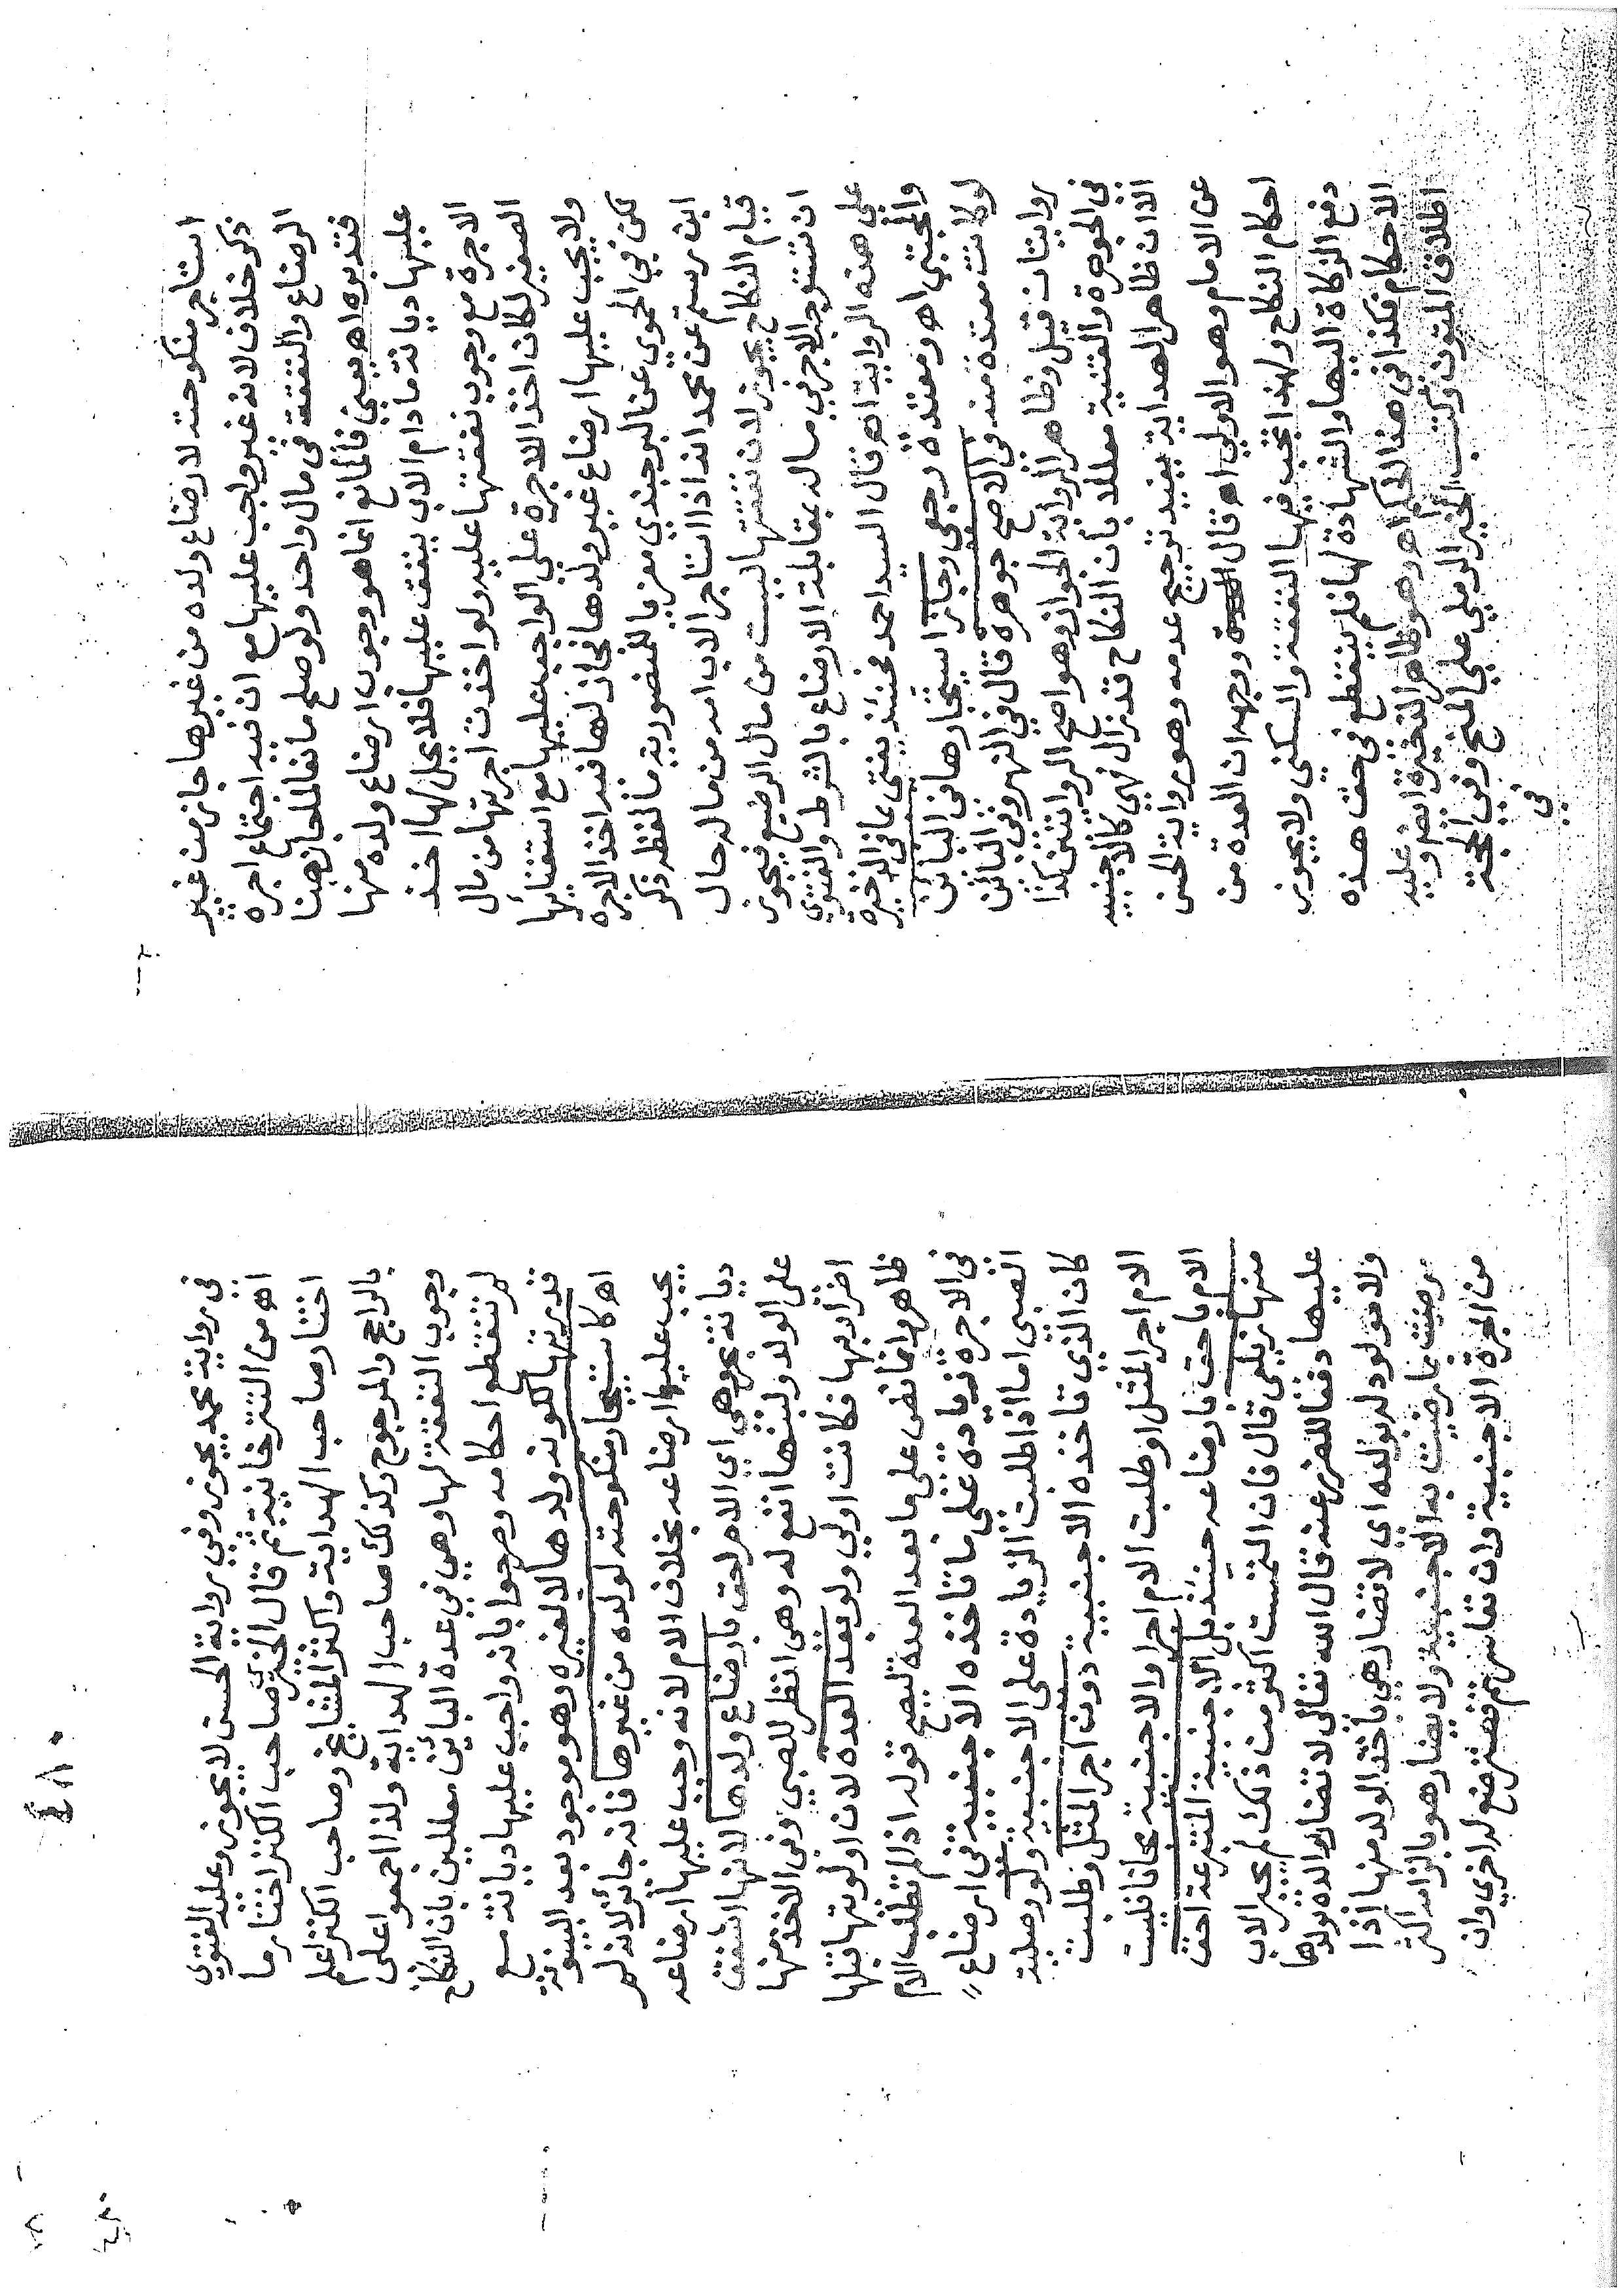 استاجر منكوحته لارضاع ولده من غيرها جاز من غير
ذكر خلاف لانه غير واجب عليها مع ان فيه اجتماع اجرة
الرضاع والنفقة في مال واحد ولو صلح مانعا لما جاز هنا
فتدبره اه يعني فالمانع انما هو وجوب ارضاع ولده منها
عليها ديانة مادام الاب ينفق عليها فلا يحل لها اخذ
الاجرة مع وجوب نفقتها عليه ولو اخذت اجرتها من مال
الصغير لكان اخذ الاجرة على الواجب عليها مع استغنائها
ولا يجب عليها ارضاع غير ولدها فجاز لها فيه اخذ الاجرة
لكن في الحموي عن البرجندي معزيا للمنصورية ما لفظه ذكر
ابن رستم عن محمد انه اذا استاجر الاب امه من ماله حال
قيام النكاح يجوز لان نفقتها ليست من مال الرضيع فيجوز
ان تستوجب الاجر في ماله بمقابلة الارضاع بالشرط والفتوى
على هذه الرواية اه قال السيد احمد فحينئذ يفتى بما في الذخيرة
والمجتبى اه ومعتدة رجعي وجاز استيجارها في البائن
لو كانت معتدة منه في الاصح جوهرة قال في النهر وفي البائن
روايتان قيل وظاهر الرواية الجواز وهو اصح الروايتين كذا
في الجوهرة والقنية معللا بان النكاح قد زال فهي كالاجنبية
الا ان ظاهر الهداية يفيد ترجيح عدمه وهو رواية الحسن
عن الامام وهو الاولى اه قال ووجهه ان العدة من
احكام النكاح ولهذا تجب فيها النفقة والسكنى ولا يجوز
دفع الزكاة اليها والشهادة لها فلم ينقطع في حق هذه
الاحكام فكذا في هذا الحكم اه وهو ظاهر الذخيرة ايضا وعليه
اطلاق المتون وكتب الخير الرملي على المنح وفي الحجة
في
٤٨٠
في رواية محمد يجوز وفي رواية الحسن لا يجوز وعليه الفتوى
اه من التترخانية ثم قال الخير صاحب الكنز اختار ما
اختار صاحب الهداية واكثر المشايخ وصاحب الكنز اعلم
بالراجح والمرجوح وكذلك صاحب الهداية ولذا اجمعوا على
وجوب النفقة لها وهي في عدة البائن معللين بان النكاح
لم تنقطع احكامه وصرحوا بانه واجب عليها ديانة مع
قدرتها لكونه ولدها لا لغيره وهو موجود بعد البينونة
اه كاستيجار منكوحته لولده من غيرها فانه جائز لانه لم
يجب عليها ارضاعه بخلاف الام لانه وجب عليها ارضاعه
ديانة وهي اي الام احق بارضاع ولدها لانها اشفق
على الولد ولبنها انفع له وهي انظر للصبي وفي الاخذ منها
اضرار بها فكانت اولى ولو بعد العدة لان اولويتها قبلها
ظاهر وانما نص على ما بعد العدة ليصح قوله اذا لم تطلب الام
في الاجرة زيادة على ما تاخذه الاجنبية في ارضاع
الصبي اما اذا طلبت الزيادة على الاجنبية ولو دون اجر المثل
كان الذي تاخذه الاجنبية دون اجر المثل وطلبت
الام اجر المثل او طلبت الام اجرا والاجنبية مجانا فليست
الام باحق بارضاعه حينئذ بل الاجنبية المتبرعة احق
منها زيلعي قال فان التمست اكثر من ذلك لم يجبر الاب
عليها دفعا للضرر عنه قال الله تعالى لا تضار والدة بولدها
ولا مولود له بولده اي لا تضار هي باخذ الولد منها اذا
رضيت بما رضيت به الاجنبية ولا يضار هو بالزامه اكثر
من اجرة الاجنبية وان تعاسرتم فسترضع له اخرى وان